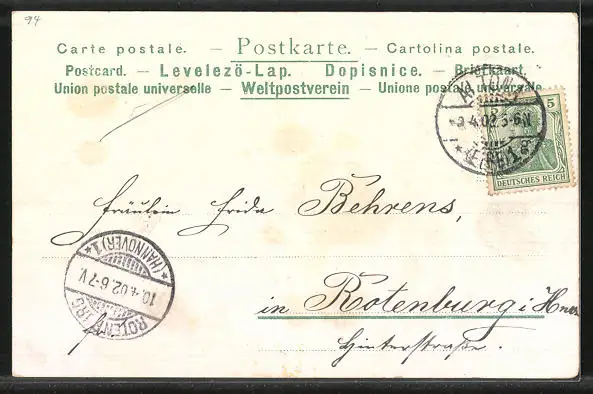 94
Carte postale. — Postkarte. — Cartolina postale.
Postcard. — Levelezö-Lap. Dopisnice. — Briefkaart.
Union postale universelle — Weltpostverein — Unione postale universale
5
DEUTSCHES REICH
4.02. 5-6N
Fräulein Frida Behrens,
in Rotenburg i/Hann
Hinterstraße.
ROTENBURG
10.4.02.6-7V.
*(HANNOVER)1*